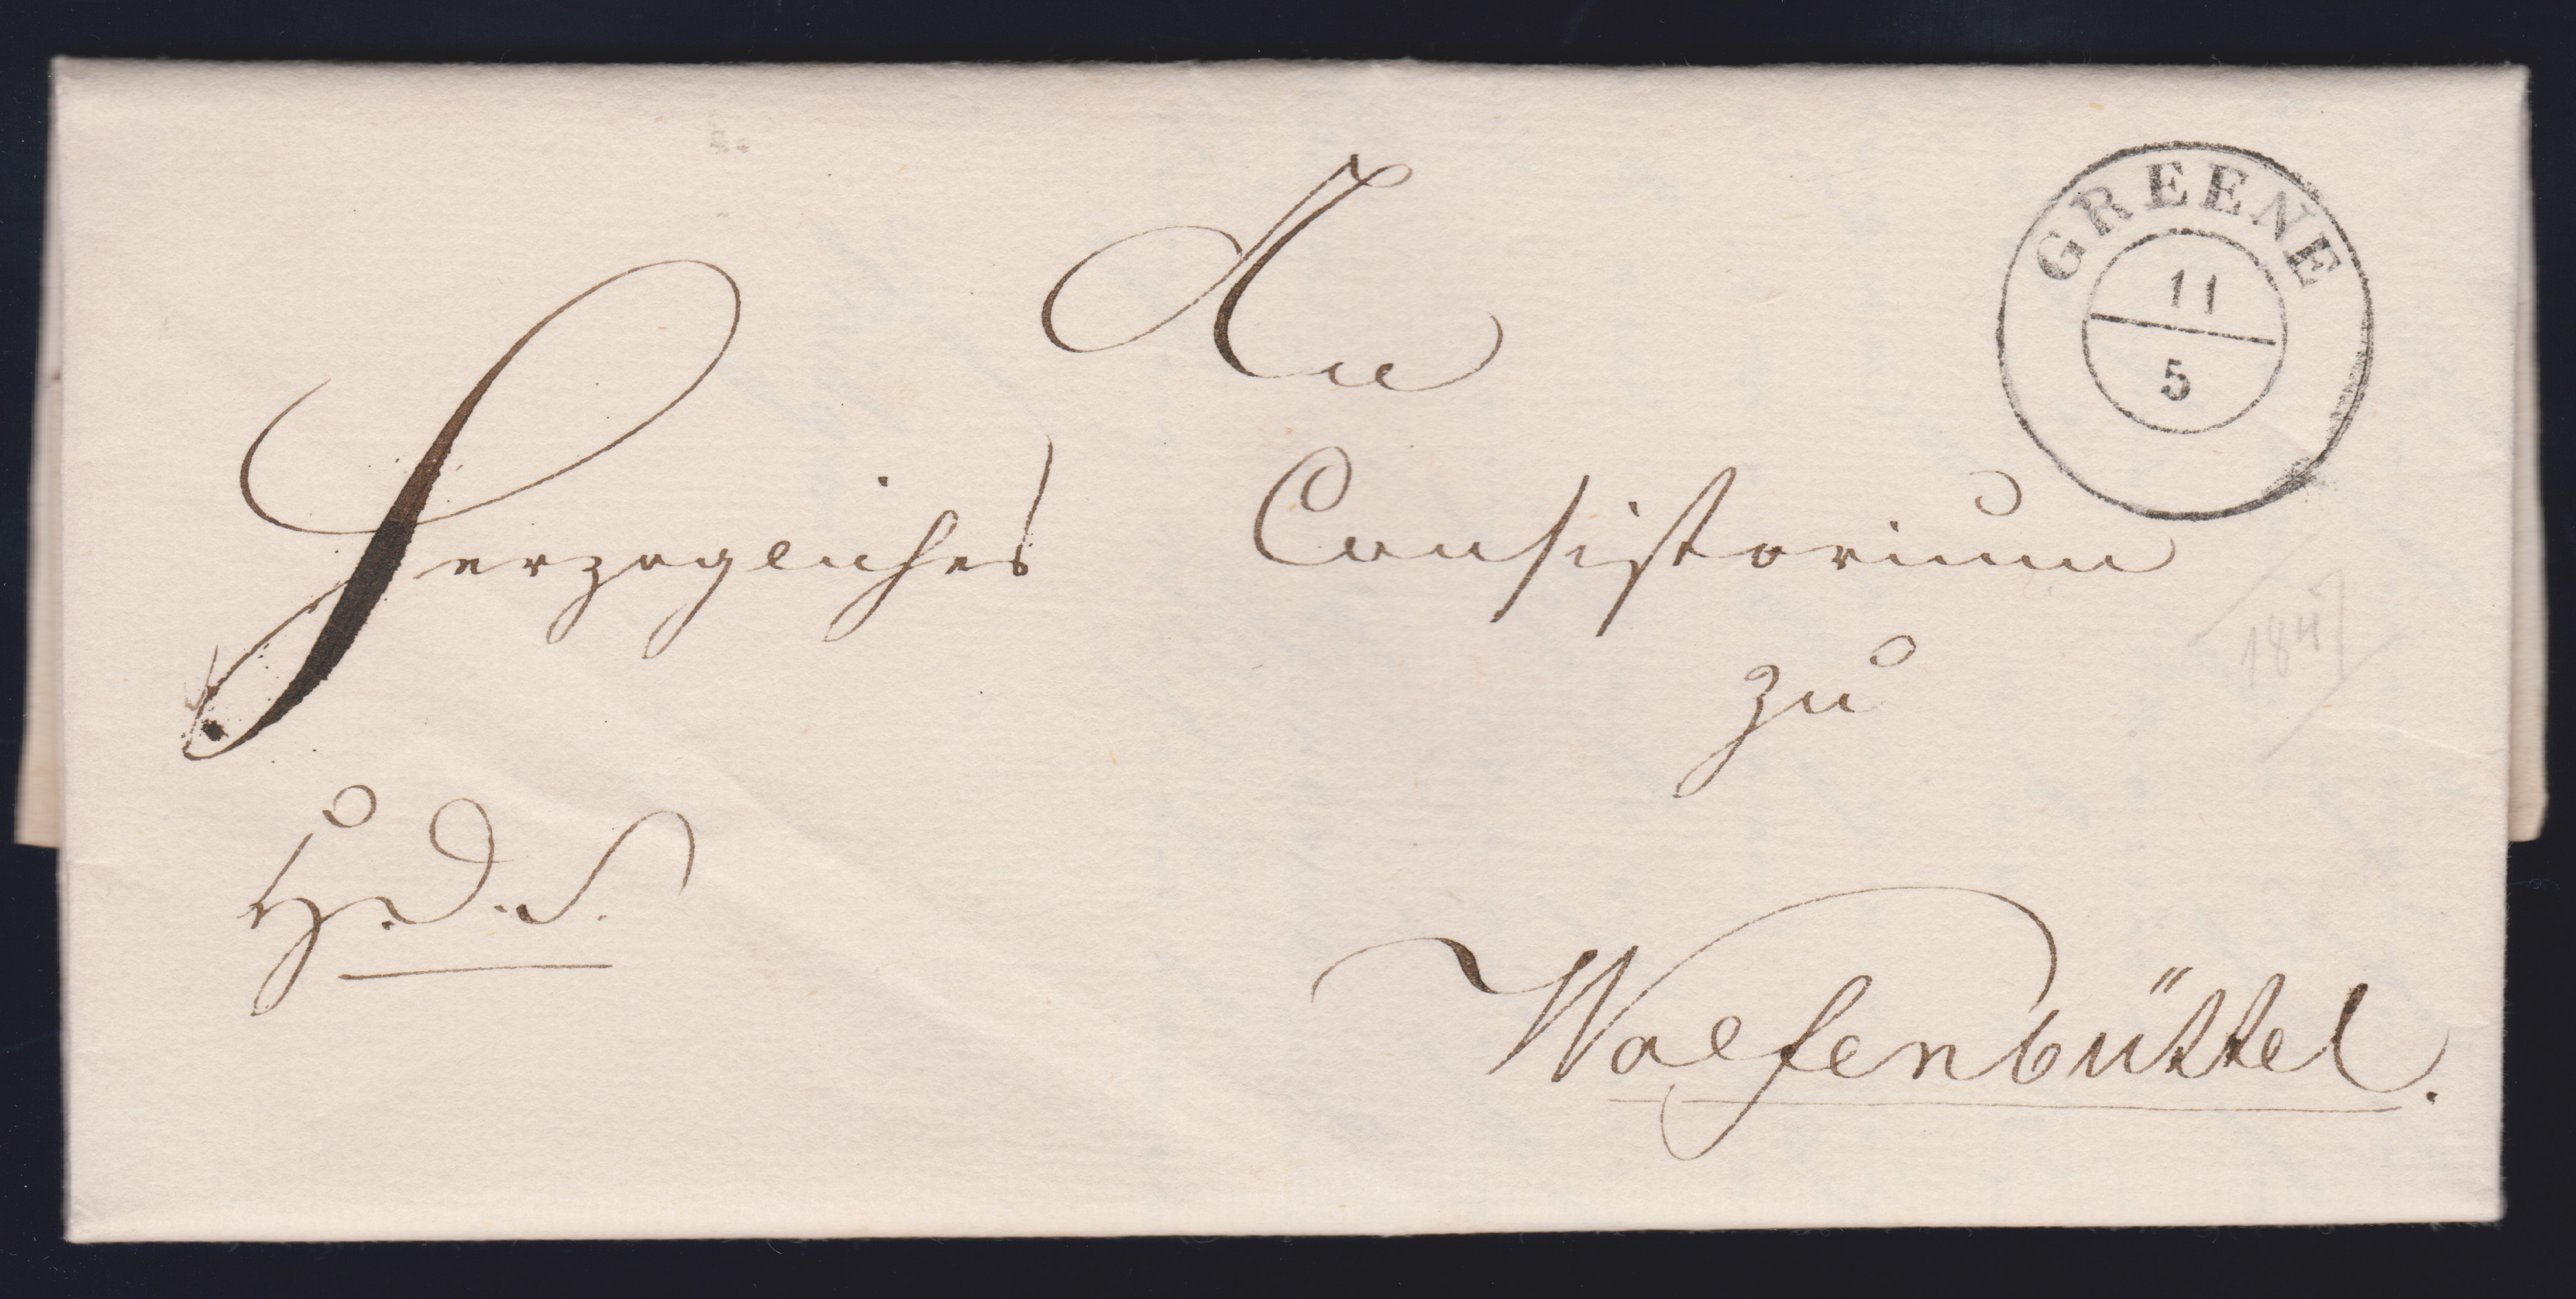 GREENE
11
5
An
Herzogliches Consistorium
zu
H. D. S.
Wolfenbüttel.